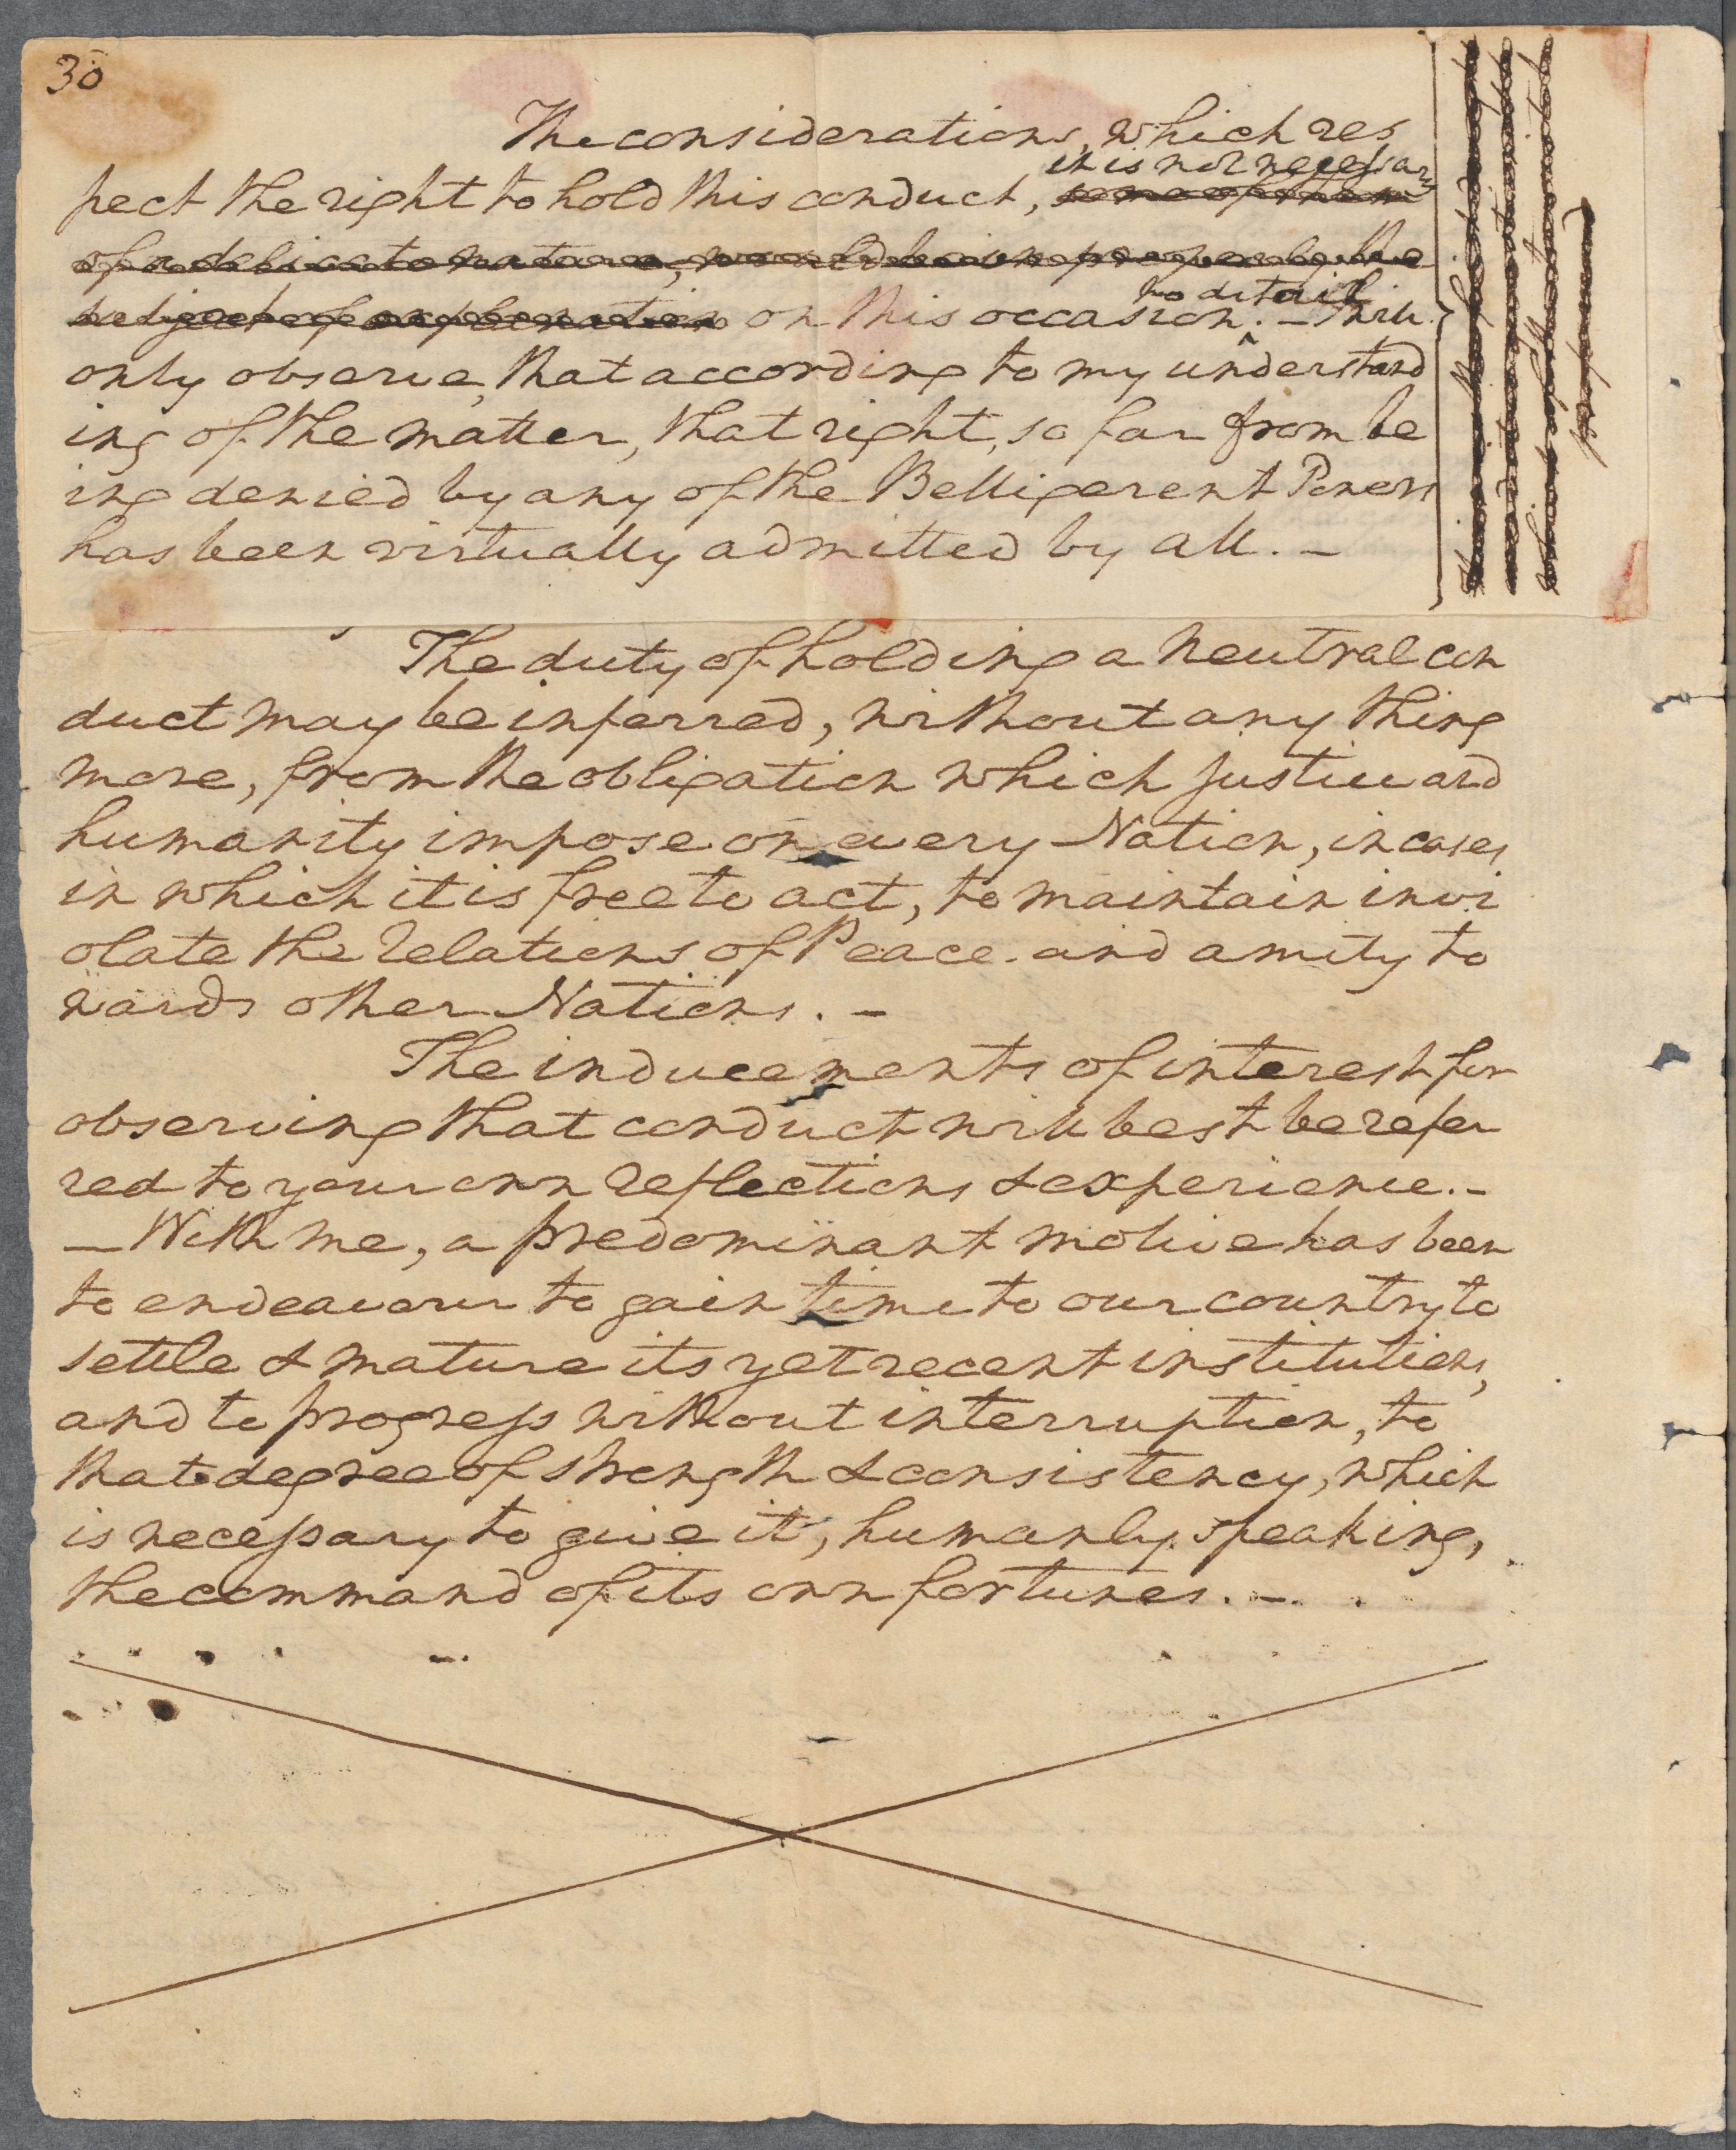 30
The considerations, which res
pect the right to hold this conduct, it is not necessary
some of them
of a delicate nature, would be improperly the
subject of explanation on this occasion. to detail – I will
only observe, that according to my understand
ing of the matter, that right, so far from be
ing denied by any of the Belligerent Powers
has been virtually admitted by all. –
The duty of holding a neutral con
duct may be inferred, without any thing
more, from the obligation which justice and
humanity impose on every Nation, in cases
in which it is free to act, to maintain invi
olate the relations of Peace and amity to
wards other Nations. –
The inducements of interest for
observing that conduct will best be refer
red to your own reflections & experience. –
– With me, a predominant motive has been
to endeavour to gain time to our country to
settle & mature its yet recent institutions,
and to progress without interruption, to
that degree of strength & consistency, which
is necessary to give it, humanly speaking,
the command of its own fortunes. –